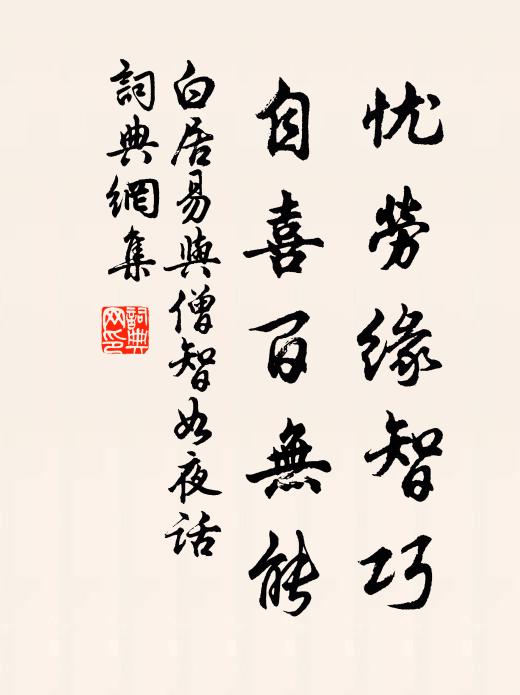 忧劳缘智巧
自喜百無能
白居易與僧智如夜话
詞典網集
詞典网印